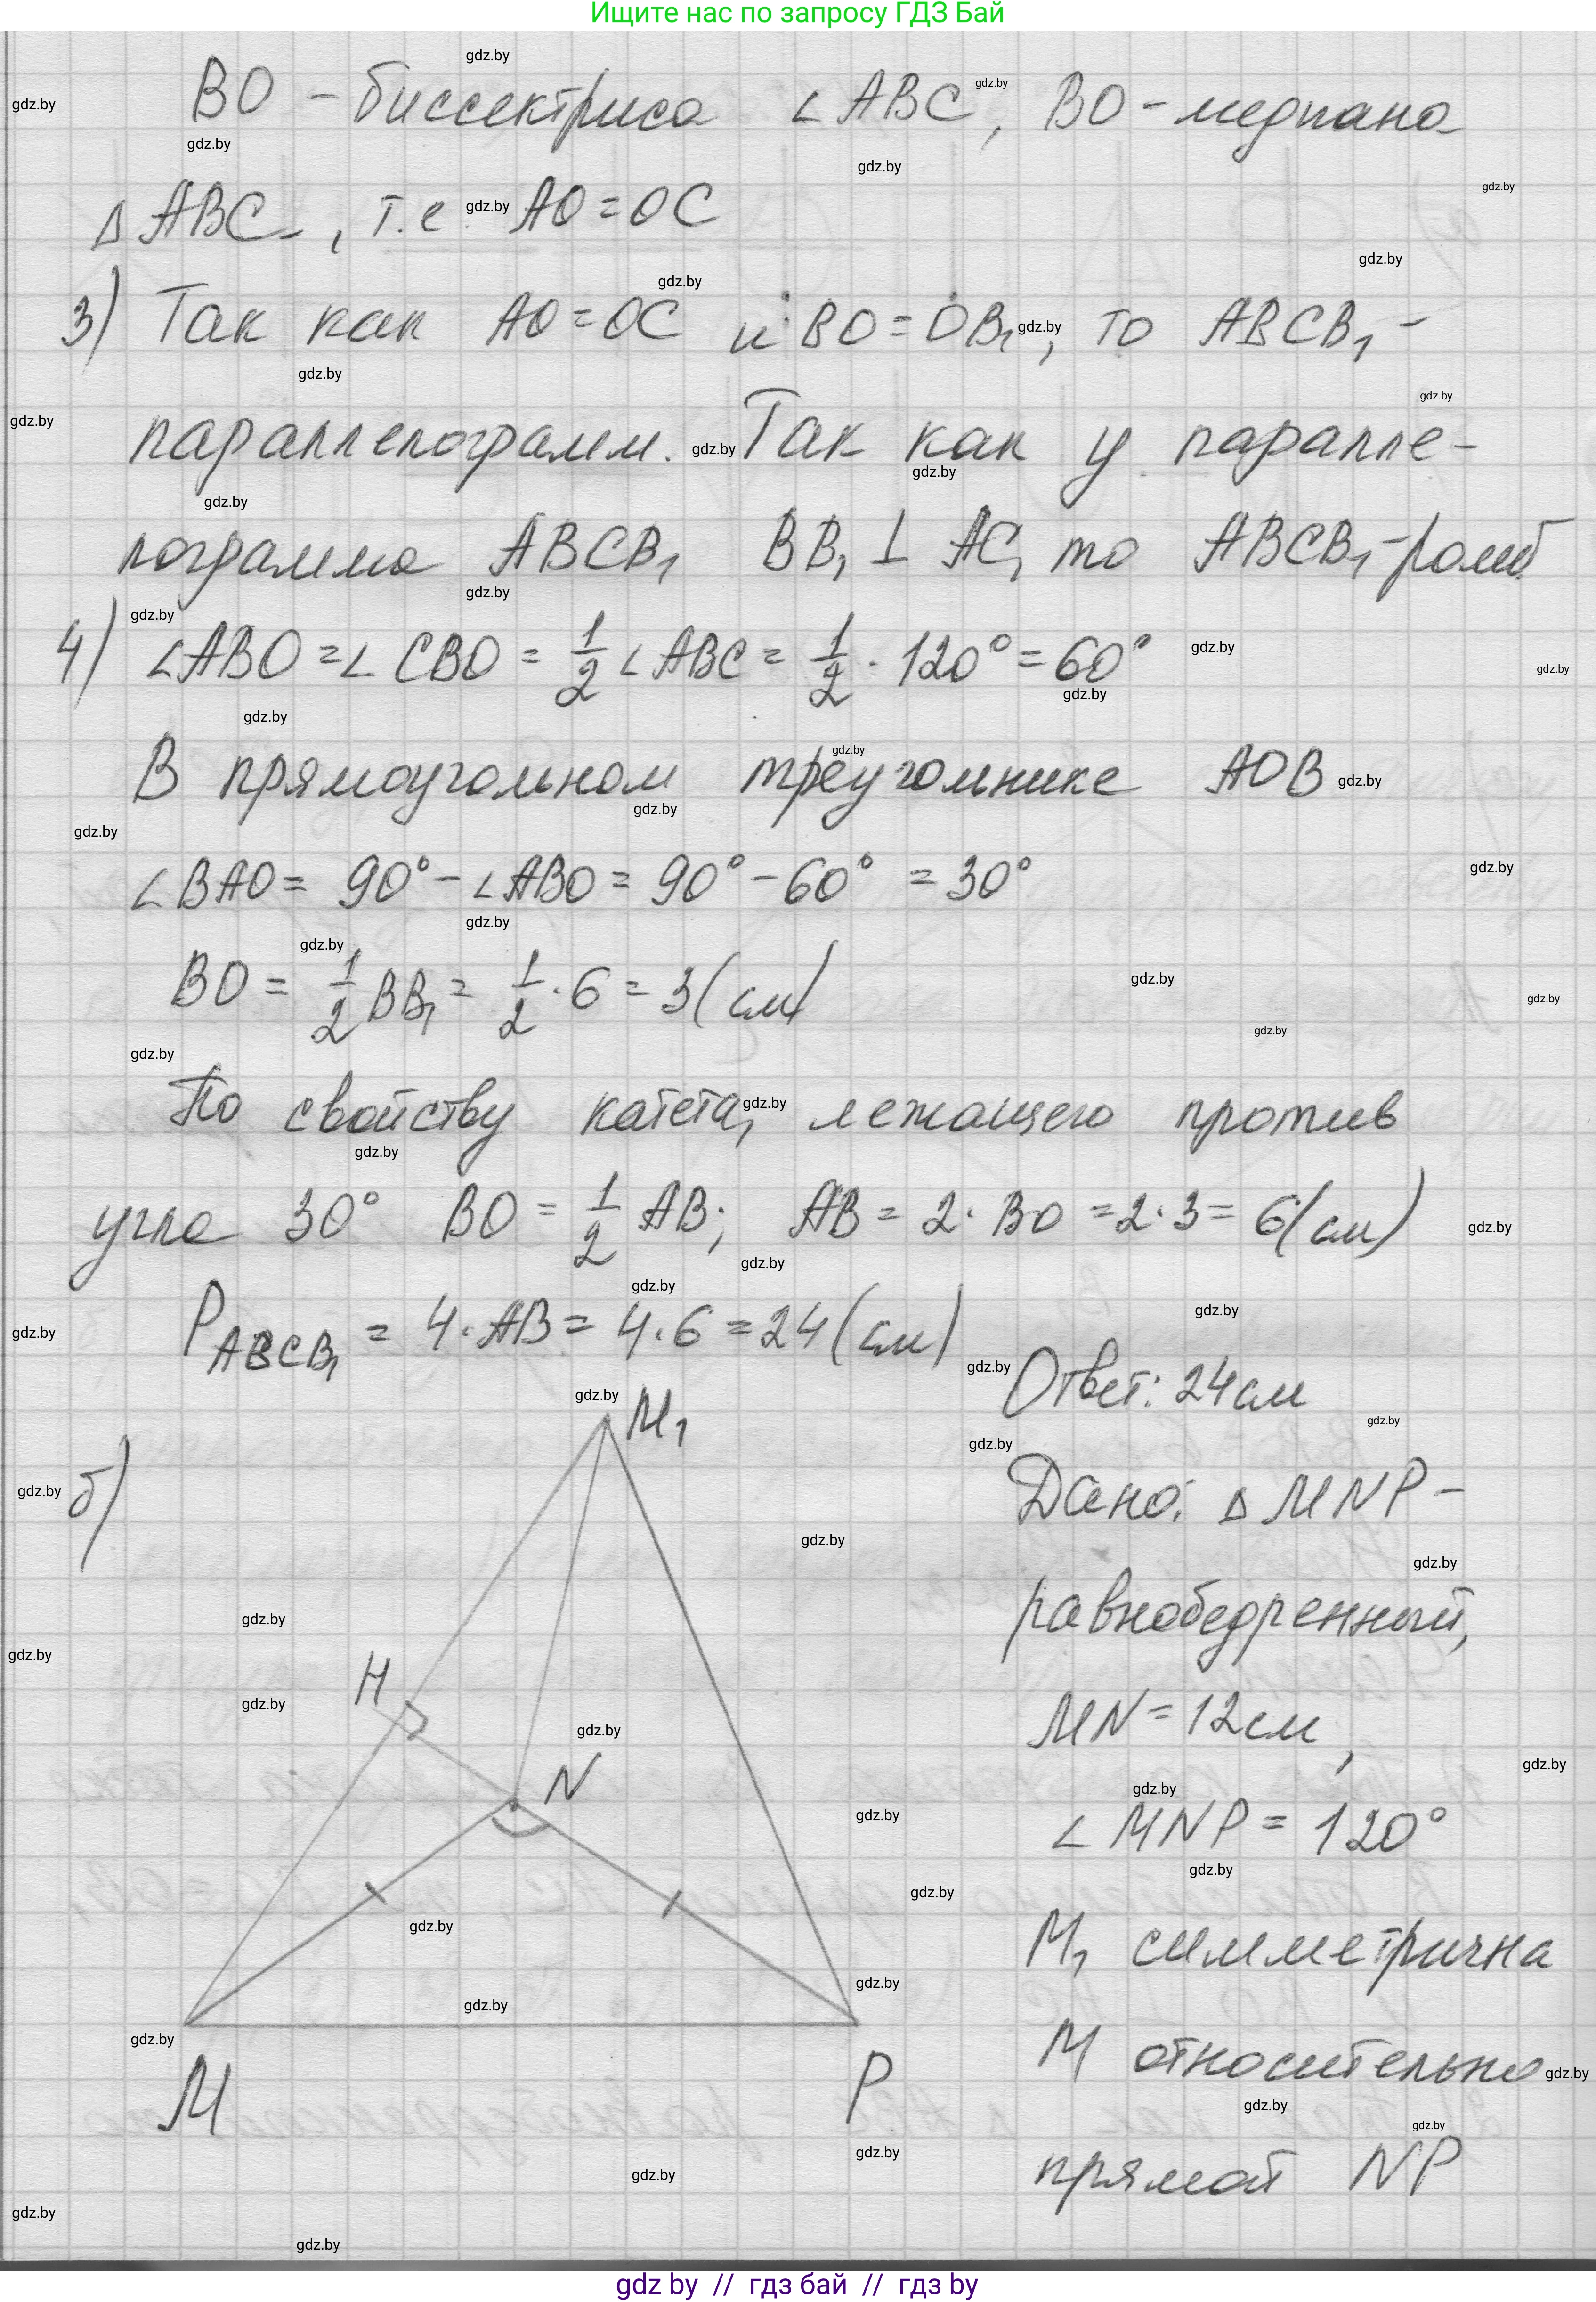 Ищите нас по запросу ГДЗ Бай
BO – биссектриса ∠ABC, BO – медиана
△ABC, т.е. AO = OC
3) Так как AO = OC и BO = OB₁, то ABCB₁ –
параллелограмм. Так как у паралле-
лограмма ABCB₁ BB₁ ⊥ AC, то ABCB₁ – ромб
4) ∠ABO = ∠CBO = 1/2 ∠ABC = 1/2 · 120° = 60°
В прямоугольном треугольнике AOB
∠BAO = 90° – ∠ABO = 90° – 60° = 30°
BO = 1/2 BB₁ = 1/2 · 6 = 3 (см)
По свойству катета, лежащего против
угла 30° BO = 1/2 AB; AB = 2 · BO = 2 · 3 = 6 (см)
P ABCB₁ = 4 · AB = 4 · 6 = 24 (см)
Ответ: 24 см
б)
M₁
H
N
M
P
Дано: △MNP –
равнобедренный,
MN = 12 см,
∠MNP = 120°
M₁ симметрична
M относительно
прямой NP
gdz by // гдз бай // гдз by